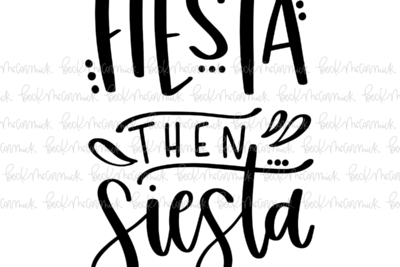 FIESTA
THEN
siesta